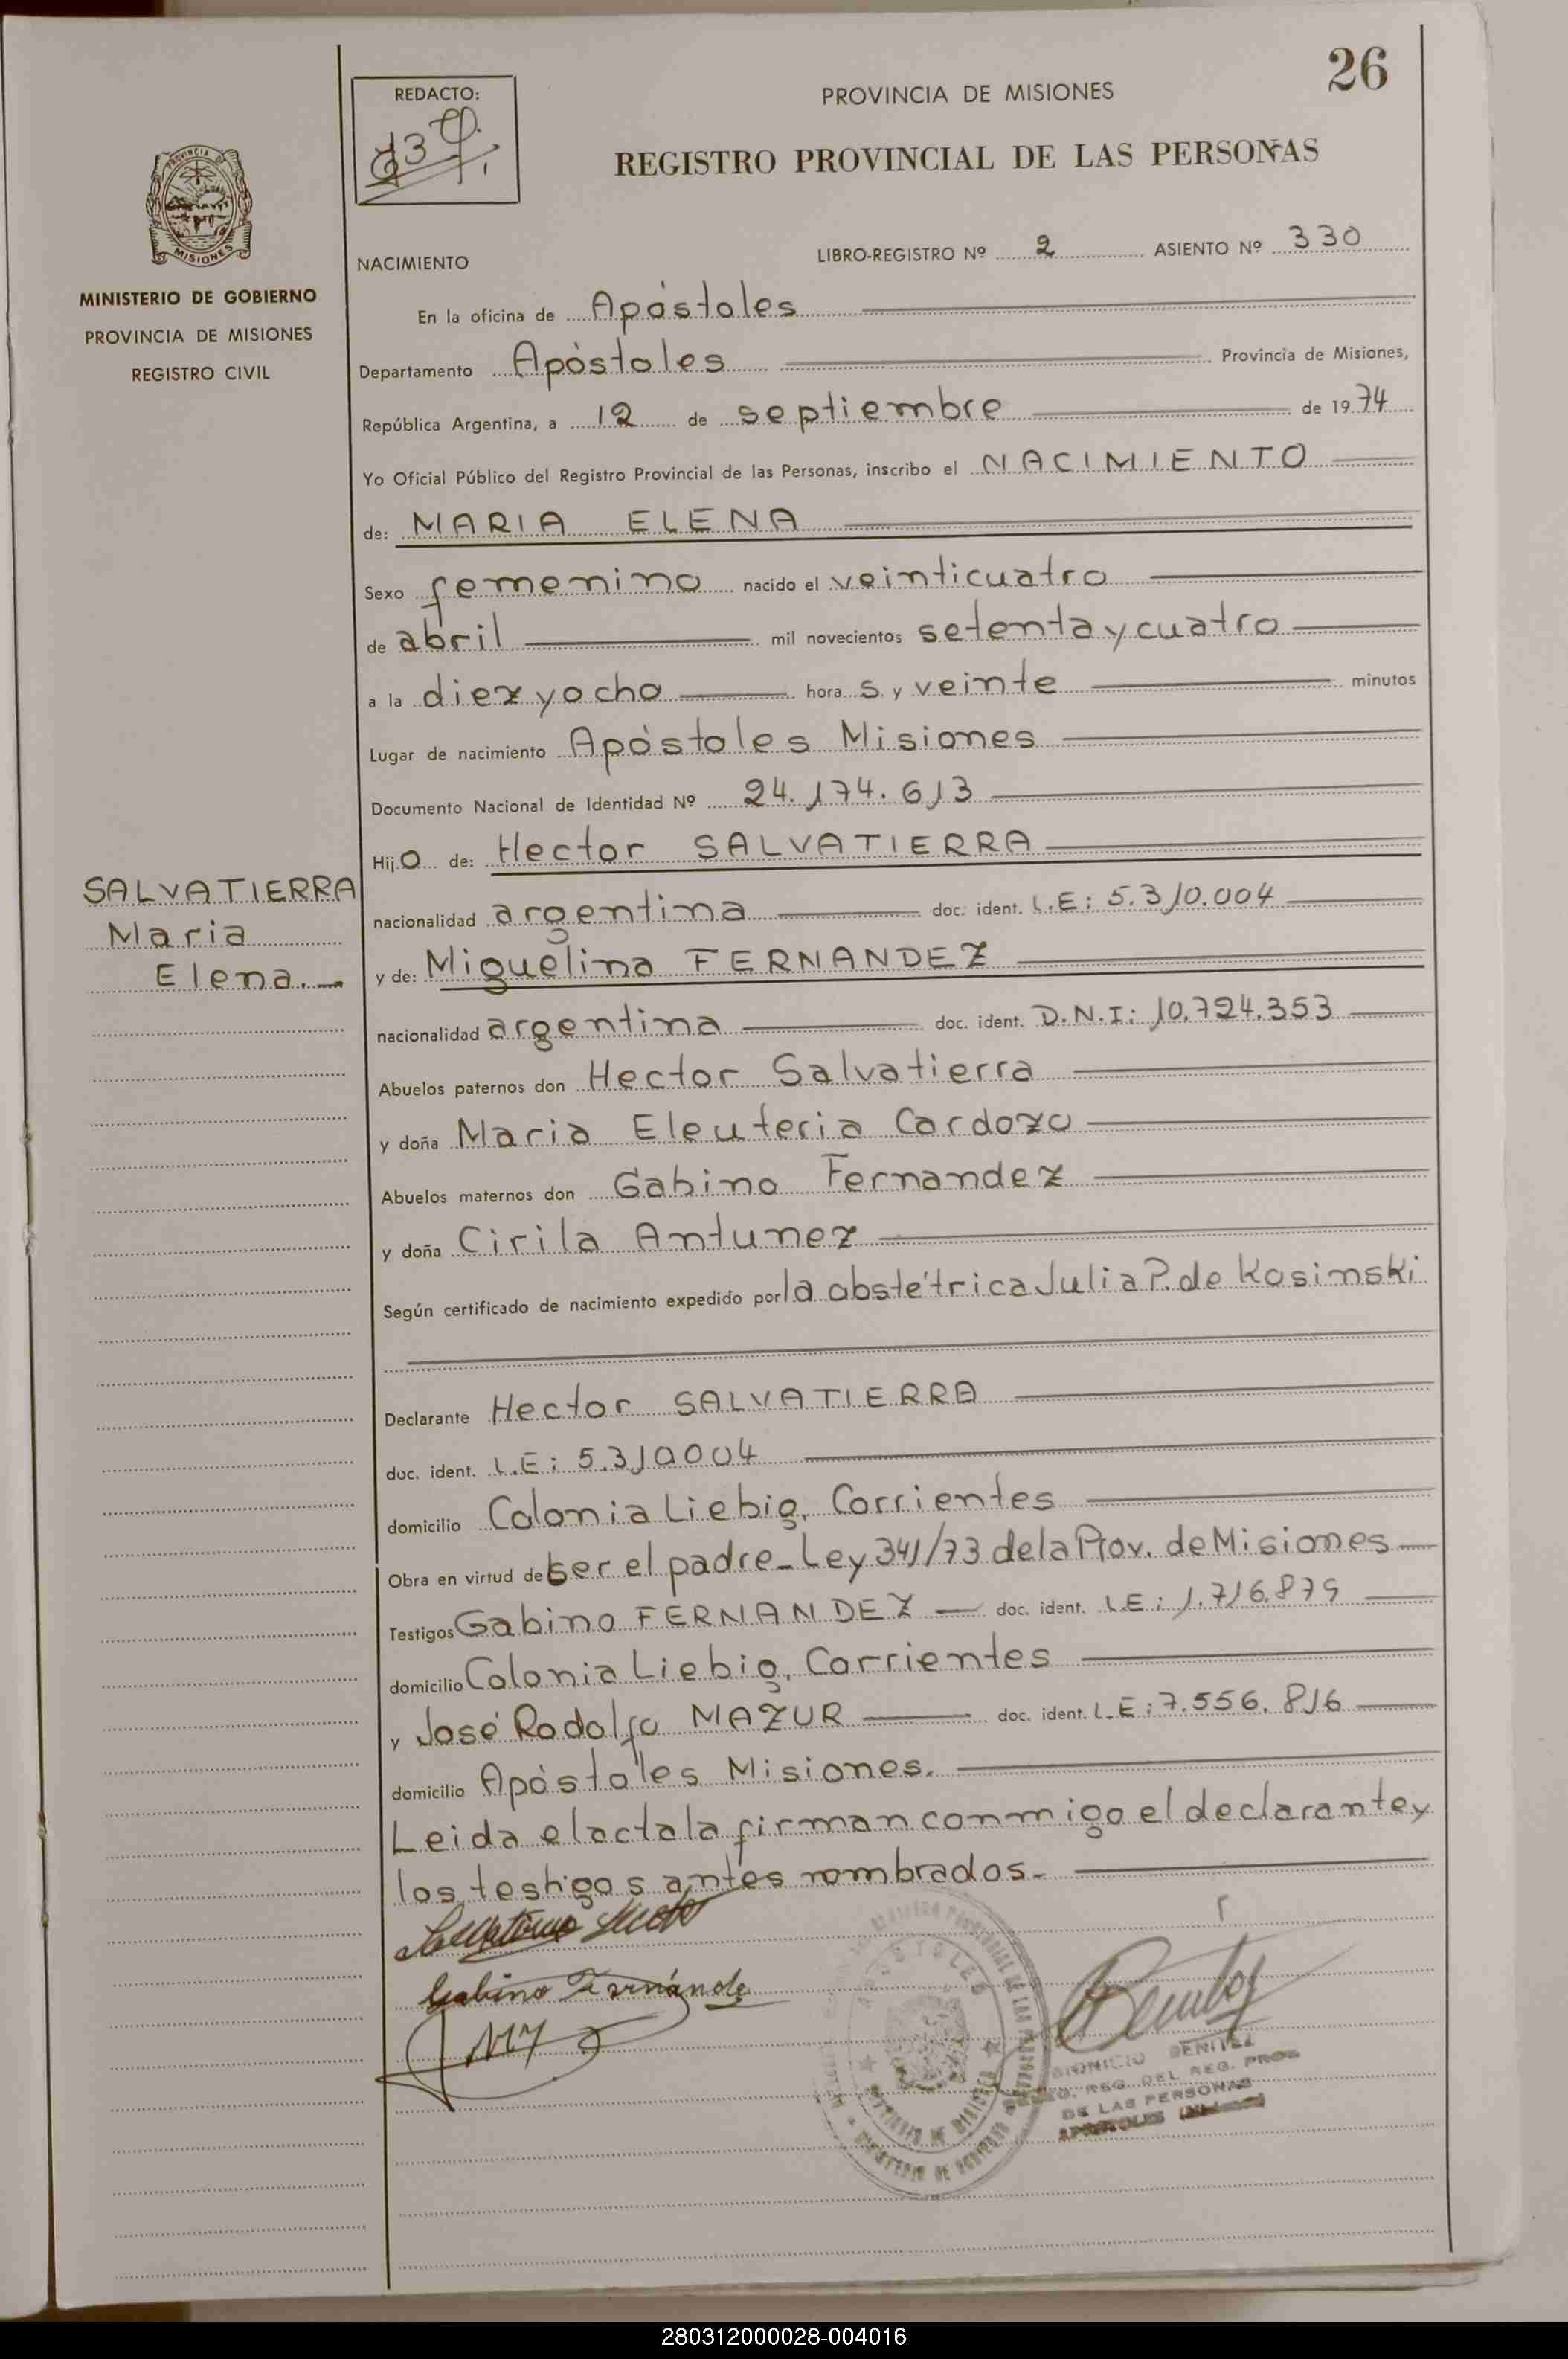 26
REDACTO:
PROVINCIA DE MISIONES
REGISTRO PROVINCIAL DE LAS PERSONAS
PROVINCIA DE
MISIONES
MINISTERIO DE GOBIERNO
PROVINCIA DE MISIONES
REGISTRO CIVIL
NACIMIENTO LIBRO-REGISTRO Nº 2 ASIENTO Nº 330
En la oficina de Apóstoles
Departamento Apóstoles Provincia de Misiones,
República Argentina, a 12 de septiembre de 1974
Yo Oficial Público del Registro Provincial de las Personas, inscribo el NACIMIENTO
de: MARIA ELENA
Sexo femenino nacido el veinticuatro
de abril mil novecientos setenta y cuatro
a la diez y ocho hora s y veinte minutos
Lugar de nacimiento Apóstoles Misiones
Documento Nacional de Identidad Nº 24.174.613
Hijo de: Hector SALVATIERRA
nacionalidad argentina doc. ident. L.E: 5.310.004
y de: Miguelina FERNANDEZ
nacionalidad argentina doc. ident. D.N.I: 10.724.353
Abuelos paternos don Hector Salvatierra
y doña Maria Eleuteria Cardozo
Abuelos maternos don Gabino Fernandez
y doña Cirila Antunez
Según certificado de nacimiento expedido por la obstétrica Julia P. de Kosinski
Declarante Hector SALVATIERRA
doc. ident. L.E: 5.310004
domicilio Colonia Liebig, Corrientes
Obra en virtud de ser el padre_Ley 341/73 de la Prov. de Misiones
Testigos Gabino FERNANDEZ doc. ident. L.E: 1.716.879
domicilio Colonia Liebig, Corrientes
y José Rodolfo MAZUR doc. ident. L.E: 7.556.816
domicilio Apóstoles Misiones.
Leida el acta la firman conmigo el declarante y
los testigos antes nombrados.-
SALVATIERRA
Maria
Elena.-
Gabino Fernández
APOSTOLES
DIONICIO BENITEZ
REG. DEL REG. PROV.
DE LAS PERSONAS
280312000028-004016